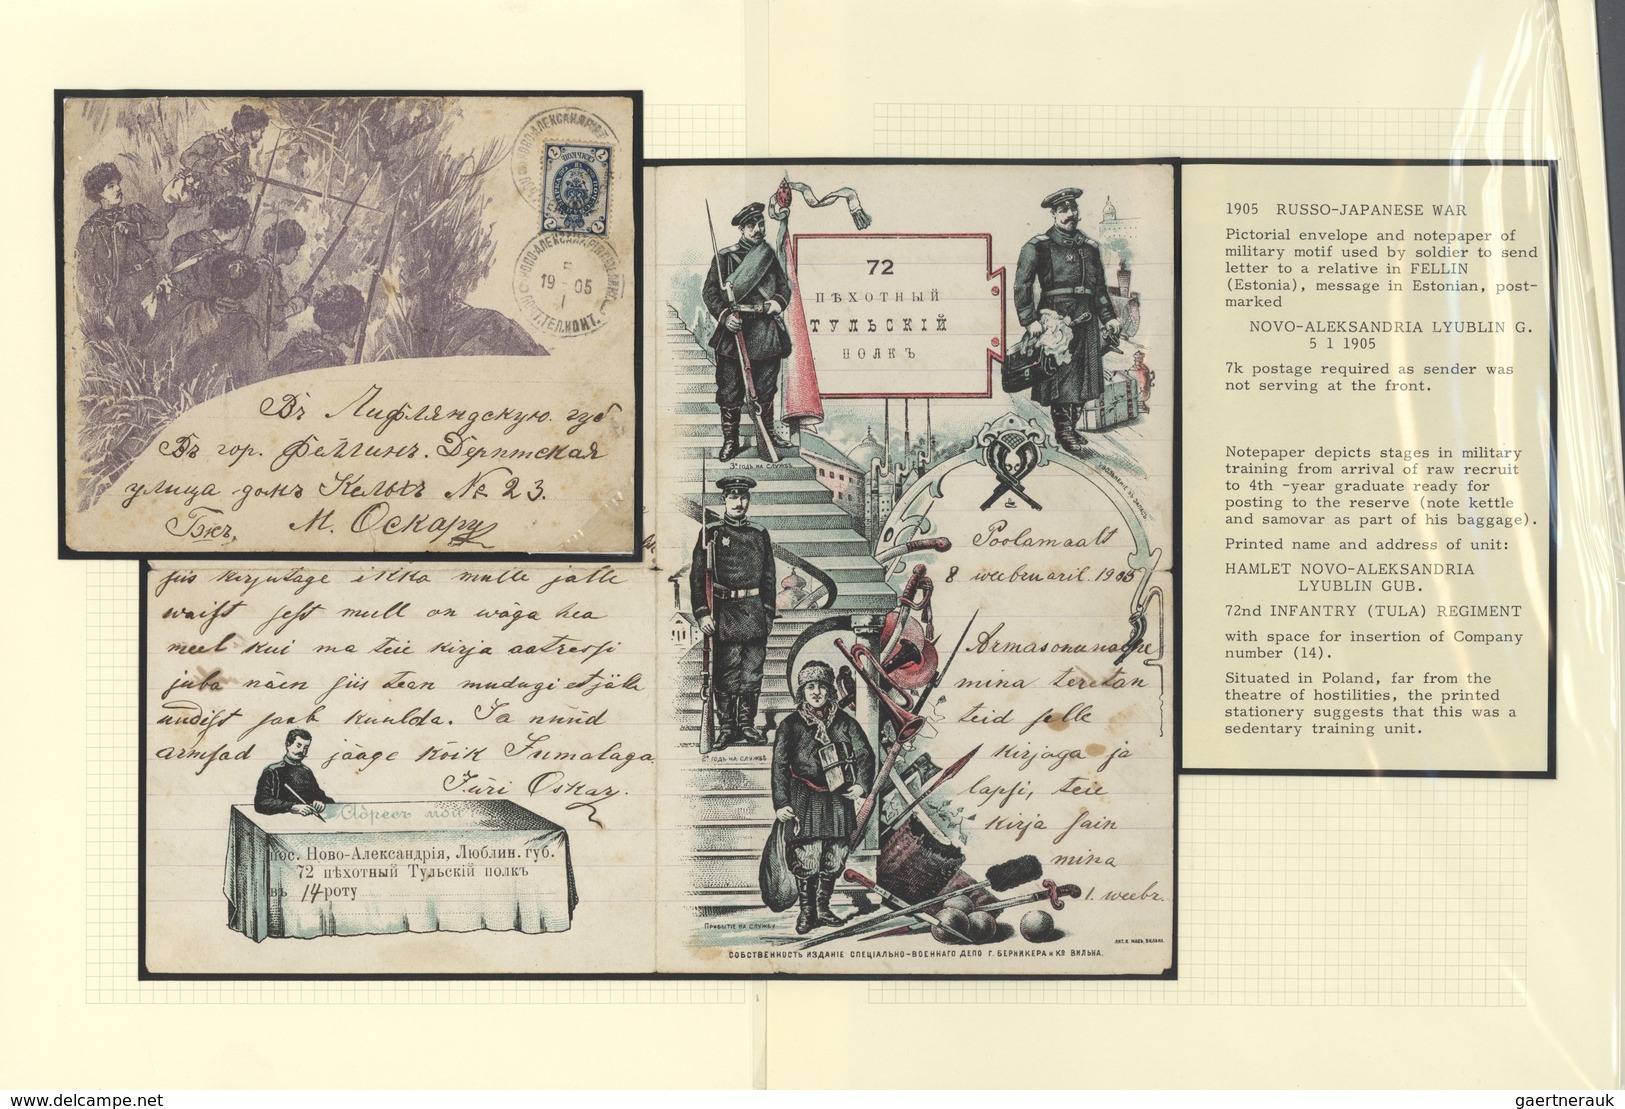 НОВО-АЛЕКСАНДРІЯ
5
19 05
1
ПОЧТ.ТЕЛ.КОНТ.
7 7
Въ Лифляндскую губ
Въ гор. Феллинъ. Дерптская
улица домъ Кельхъ № 23.
М. Оскару
siis kirjutage ikka mulle jälle
waist sest mull on wäga hea
meel kui ma teie kirja aatressi
juba näen siis tean mudugi et jälle
uudist saab kuulda. Ja nüüd
armsad jääge kõik Jumalaga
Jüri Oskar.
Адресъ мой:
пос. Ново-Александрія, Люблин. губ.
72 пѣхотный Тульскій полкъ
въ 14 роту
72
ПѢХОТНЫЙ
ТУЛЬСКІЙ
ПОЛКЪ
3й ГОДЪ НА СЛУЖБѢ
УВОЛЬНЕНІЕ ВЪ ЗАПАСЪ
2й ГОДЪ НА СЛУЖБѢ
ПРИБЫТІЕ НА СЛУЖБУ
Poolamaalt
8 weebruaril. 1905
Armas onunaene
mina teretan
teid selle
kirjaga ja
lapsi, teie
kirja sain
mina
1. weebr.
СОБСТВЕННОСТЬ ИЗДАНІЕ СПЕЦІАЛЬНО-ВОЕННАГО ДЕПО Г. БЕРНИКЕРА и Ко ВИЛЬНА.
1905 RUSSO-JAPANESE WAR
Pictorial envelope and notepaper of
military motif used by soldier to send
letter to a relative in FELLIN
(Estonia), message in Estonian, post-
marked
NOVO-ALEKSANDRIA LYUBLIN G.
5 I 1905
7k postage required as sender was
not serving at the front.
Notepaper depicts stages in military
training from arrival of raw recruit
to 4th -year graduate ready for
posting to the reserve (note kettle
and samovar as part of his baggage).
Printed name and address of unit:
HAMLET NOVO-ALEKSANDRIA
LYUBLIN GUB.
72nd INFANTRY (TULA) REGIMENT
with space for insertion of Company
number (14).
Situated in Poland, far from the
theatre of hostilities, the printed
stationery suggests that this was a
sedentary training unit.
www.delcampe.net
gaertnerauk